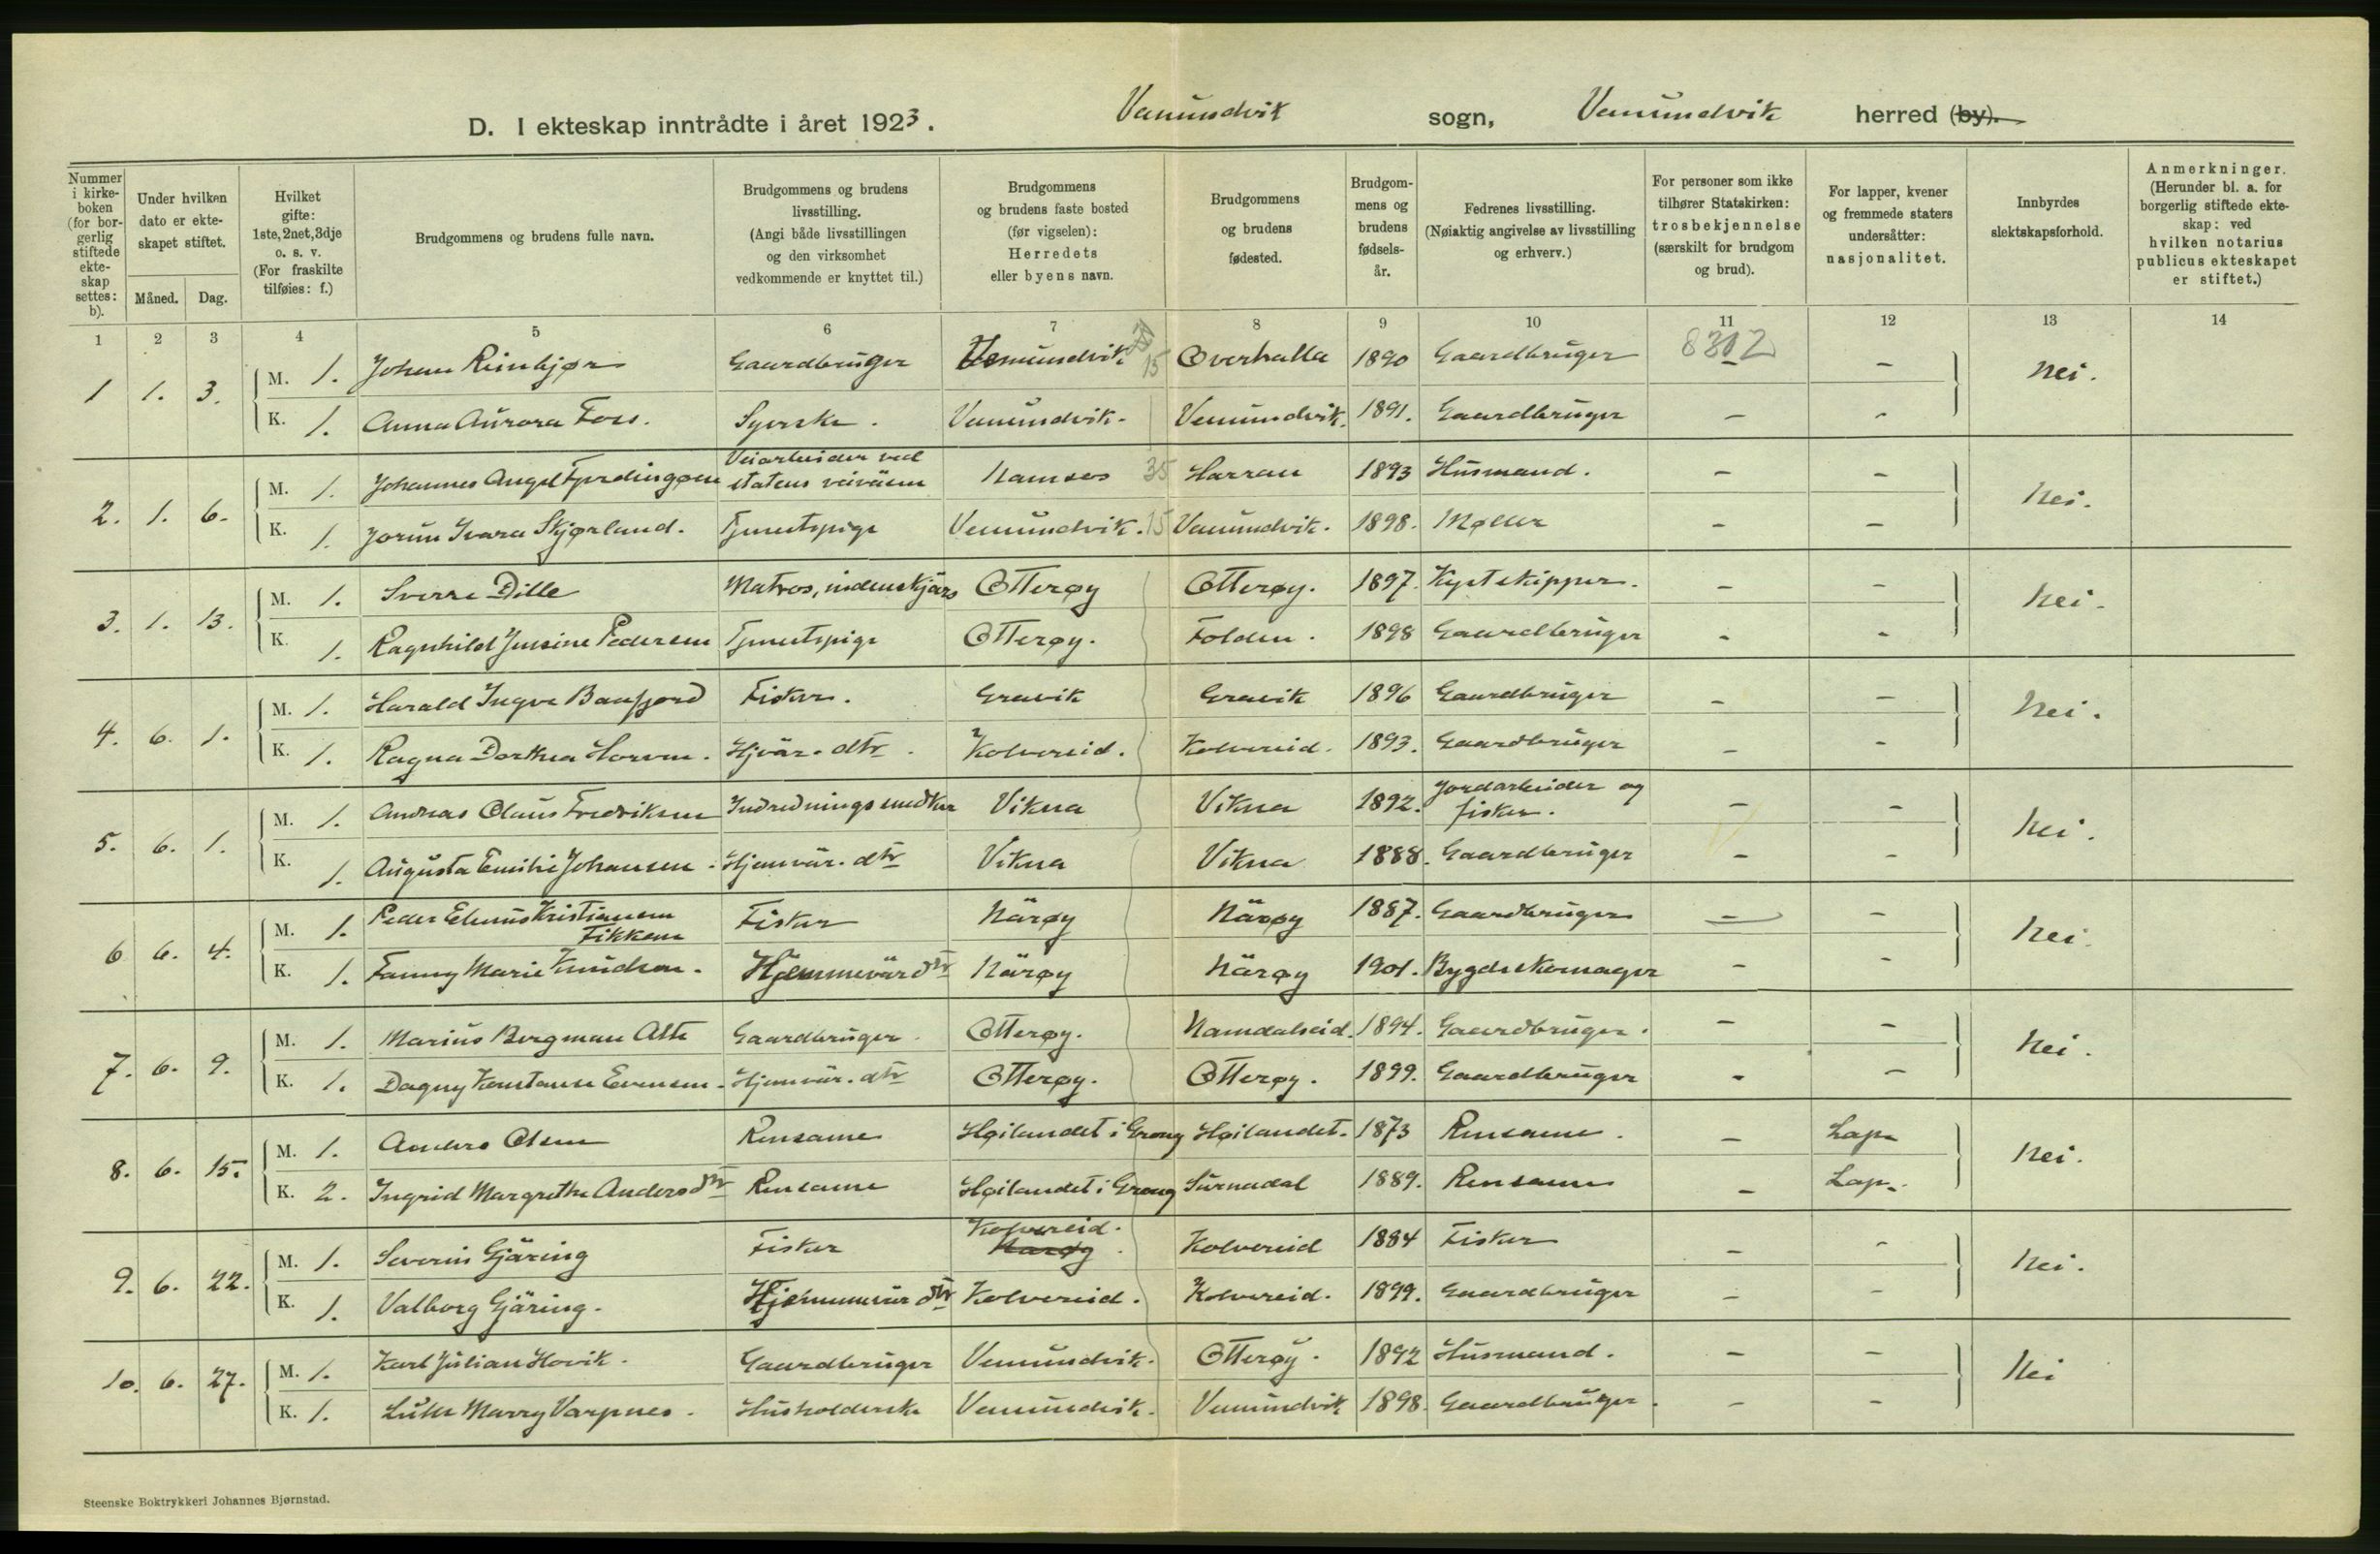 D. I ekteskap inntrådte i året 1923. Vemundvik sogn, Vemundvik herred (by).
Nummer i kirkeboken (for borgerlig stiftede ekteskap settes: b).
Under hvilken dato er ekteskapet stiftet.
Måned. Dag.
Hvilket gifte: 1ste, 2net, 3dje o. s. v. (For fraskilte tilføies: f.)
Brudgommens og brudens fulle navn.
Brudgommens og brudens livsstilling. (Angi både livsstillingen og den virksomhet vedkommende er knyttet til.)
Brudgommens og brudens faste bosted (før vigselen): Herredets eller byens navn.
Brudgommens og brudens fødested.
Brudgommens og brudens fødselsår.
Fedrenes livsstilling. (Nøiaktig angivelse av livsstilling og erhverv.)
For personer som ikke tilhører Statskirken: trosbekjennelse (særskilt for brudgom og brud).
For lapper, kvener og fremmede staters undersåtter: nasjonalitet.
Innbyrdes slektskapsforhold.
Anmerkninger. (Herunder bl. a. for borgerlig stiftede ekteskap: ved hvilken notarius publicus ekteskapet er stiftet.)
1 2 3 4 5 6 7 8 9 10 11 12 13 14
8302
1 1. 3. M. 1. Johan Reinbjør Gaardbruger Vemundvik 15 Overhalla 1890 Gaardbruger - - Nei.
K. 1. Anna Aurora Foss. Syerske. Vemundvik. Vemundvik. 1891. Gaardbruger - -
2. 1. 6. M. 1. Johannes Angel Fjerdingøen Veiarbeider ved statens veivæsen Namsos 35 Harran 1893 Husmand. - - Nei.
K. 1. Jorun Ivara Skjørland. Tjenestpige Vemundvik. 15 Vemundvik. 1898. Møller - -
3. 1. 13. M. 1. Sverre Dille Matros, indenskjærs Otterøy Otterøy. 1897. Kystskipper. - - Nei.
K. 1. Ragnhild Jensine Pedersen Tjenestpige Otterøy. Folden. 1898 Gaardbruger - -
4. 6. 1. M. 1. Harald Ingve Baafjord Fisker. Gravik Gravik 1896 Gaardbruger - - Nei.
K. 1. Ragna Dorthea Horven. Hjvær. dtr. Kolvereid. Kolvereid. 1893. Gaardbruger - -
5. 6. 1. M. 1. Andreas Olaus Fredriksen Indredningssnedker Vikna Vikna 1892. Jordarbeider og fisker. - - Nei.
K. 1. Augusta Emilie Johansen. Hjemvær. dtr Vikna Vikna 1888. Gaardbruger - -
6 6. 4. M. 1. Peder Edvius Kristiansen Fikkan Fisker Nærøy Nærøy 1887. Gaardbruger - - Nei.
K. 1. Fanny Marie Knudsen. Hjemmevær dtr Nærøy Nærøy 1901. Bygdeskomager - -
7. 6. 9. M. 1. Marius Bergman Alte Gaardbruger. Otterøy. Namdalseid. 1894. Gaardbruger. - - Nei.
K. 1. Dagny Konstanse Evensen. Hjemvær. dtr Otterøy. Otterøy. 1899. Gaardbruger - -
8. 6. 15. M. 1. Anders Olsen Rensame Høilandet i Grong Høilandet. 1873 Rensame. - Lap. Nei.
K. 2. Ingrid Margrethe Andersdtr Rensame Høilandet i Grong Surnadal 1889. Rensame - Lap.
9. 6. 22. M. 1. Severin Gjæring Fisker Kolvereid. Nærøy. Kolvereid 1884 Fisker - - Nei.
K. 1. Valborg Gjæring. Hjemmevær dtr Kolvereid. Kolvereid. 1899. Gaardbruger - -
10. 6. 27. M. 1. Karl Julian Hovik. Gaardbruger Vemundvik. Otterøy. 1892 Husmand. - - Nei
K. 1. Marry Varpnes. Husholderske Vemundvik. Vemundvik 1898. Gaardbruger. - -
Steenske Boktrykkeri Johannes Bjørnstad.